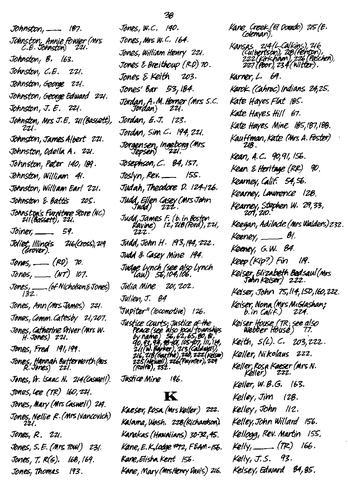 38
Johnston, ___ 187.
Johnston, Annie Power (Mrs
C.E. Johnston) 221.
Johnston, B. 163.
Johnston, C.E. 221.
Johnston, George 221.
Johnston, George Edward 221.
Johnston, J.E. 221.
Johnston, Mrs J.E. 211(Bassett),
221.
Johnston, James Albert 221.
Johnston, Odella A. 221.
Johnston, Peter 140, 189.
Johnston, William 41.
Johnston, William Earl 221.
Johnston & Bates 205.
Johnston's Furniture Store (NC)
211(Bassett), 221.
Joiner, ___ 59.
Joliet, Illinois 216(Cross), 219
Jones, ___ (RD) 70.
Jones, ___ (NT) 107.
Jones, ___ (of Nicholson & Jones)
132.
Jones, Ann (Mrs James) 221.
Jones, Comm. Catesby 21, 207.
Jones, Catherine Driver (Mrs W.
H. Jones) 221.
Jones, Fred 191, 199.
Jones, Hannah Butterworth (Mrs
R. Jones) 221.
Jones, Dr. Isaac N. 214(Caswell).
Jones, Lee (TR) 160, 221.
Jones, Mary (Mrs Caswell) 214.
Jones, Nellie R. (Mrs Ivancovich)
221.
Jones, R. 221.
Jones, S.E. (Mrs Towl) 231.
Jones, T. R(S). 168, 169.
Jones, Thomas 193.
Jones, W.C. 140.
Jones, Mrs W.C. 164.
Jones, William Henry 221.
Jones & Breithoup (RD) 70.
Jones & Keith 203.
Jones' Bar 53, 184.
Jordan, A.M. Horner (Mrs S.C.
Jordan) 221.
Jordan, E.J. 123.
Jordan, Sim C. 194, 221.
Jorgensen, Ingeborg (Mrs
Jepsen) 221.
Josephson, C. 84, 157.
Joslyn, Rev. ___ 155.
Judah, Theodore D. 124-126.
Judd, Ellen Casey (Mrs John
Judd) 222.
Judd, James F. (b. in Boston
Ravine) 12, 218(Ford), 221,
222.
Judd, John H. 193, 194, 222.
Judd & Casey Mine 194.
Judge Lynch (see also Lynch
Law) 56, 104, 106.
Julia Mine 201, 202.
Julien, J. 84
"Jupiter" (locomotive) 126.
Justice Courts; Justice of the
Peace (see also local townships
by name)
Justice Mine 196.
K
Kaeser, Rosa (Mrs Keller) 222.
Kalama, Wash. 228(Richardson)
Kanakas (Hawaiians) 30-32, 45.
Kane, E.K. Lodge #72, F&AM 156.
Kane, Elisha Kent 156.
Kane, Mary (Mrs Henry Davis) 216.
Kane Creek (El Dorado) 215 (E.
Coleman).
Kansas 214(L. Calkins), 216
Karner, L. 69.
Karok (Cahroc) Indians 24, 25.
Kate Hayes Flat 185.
Kate Hayes Hill 67.
Kate Hayes Mine 185, 187, 188.
Kauffman, Kate (Mrs A. Foster)
218.
Kean, A.C. 90, 91, 156.
Kean & Heritage (RR) 90.
Kearney, Calif. 54, 56.
Kearney, Lawrence 128.
Kearney, Stephen W. 29, 33,
207, 210.
Keegan, Adilacie (Mrs Waldron) 232.
Keeney, ___ 81.
Keeney, G.W. 84.
Keep (Kip?) Fin 119.
Keiser, Elizabeth Bodsaul (Mrs
John Keiser) 222.
Keiser, John 75, 114, 157, 160, 222.
Keiser, Nona (Mrs McGlashan;
b. in Calif.) 224.
Keiser House (TR; see also
Webber House) 77.
Keith, S(L). C. 203, 222.
Keller, Nikolaus 222.
Keller, Rosa Kaeser (Mrs N.
Keller) 222.
Keller, W.B.G. 163.
Kelley, Jim 128.
Kelley, John 112.
Kelley, John Willard 156.
Kellogg, Rev. Martin 155.
Kelly, ___ (TR) 166.
Kelly, J.S. 93.
Kelsey, Edward 84, 85.